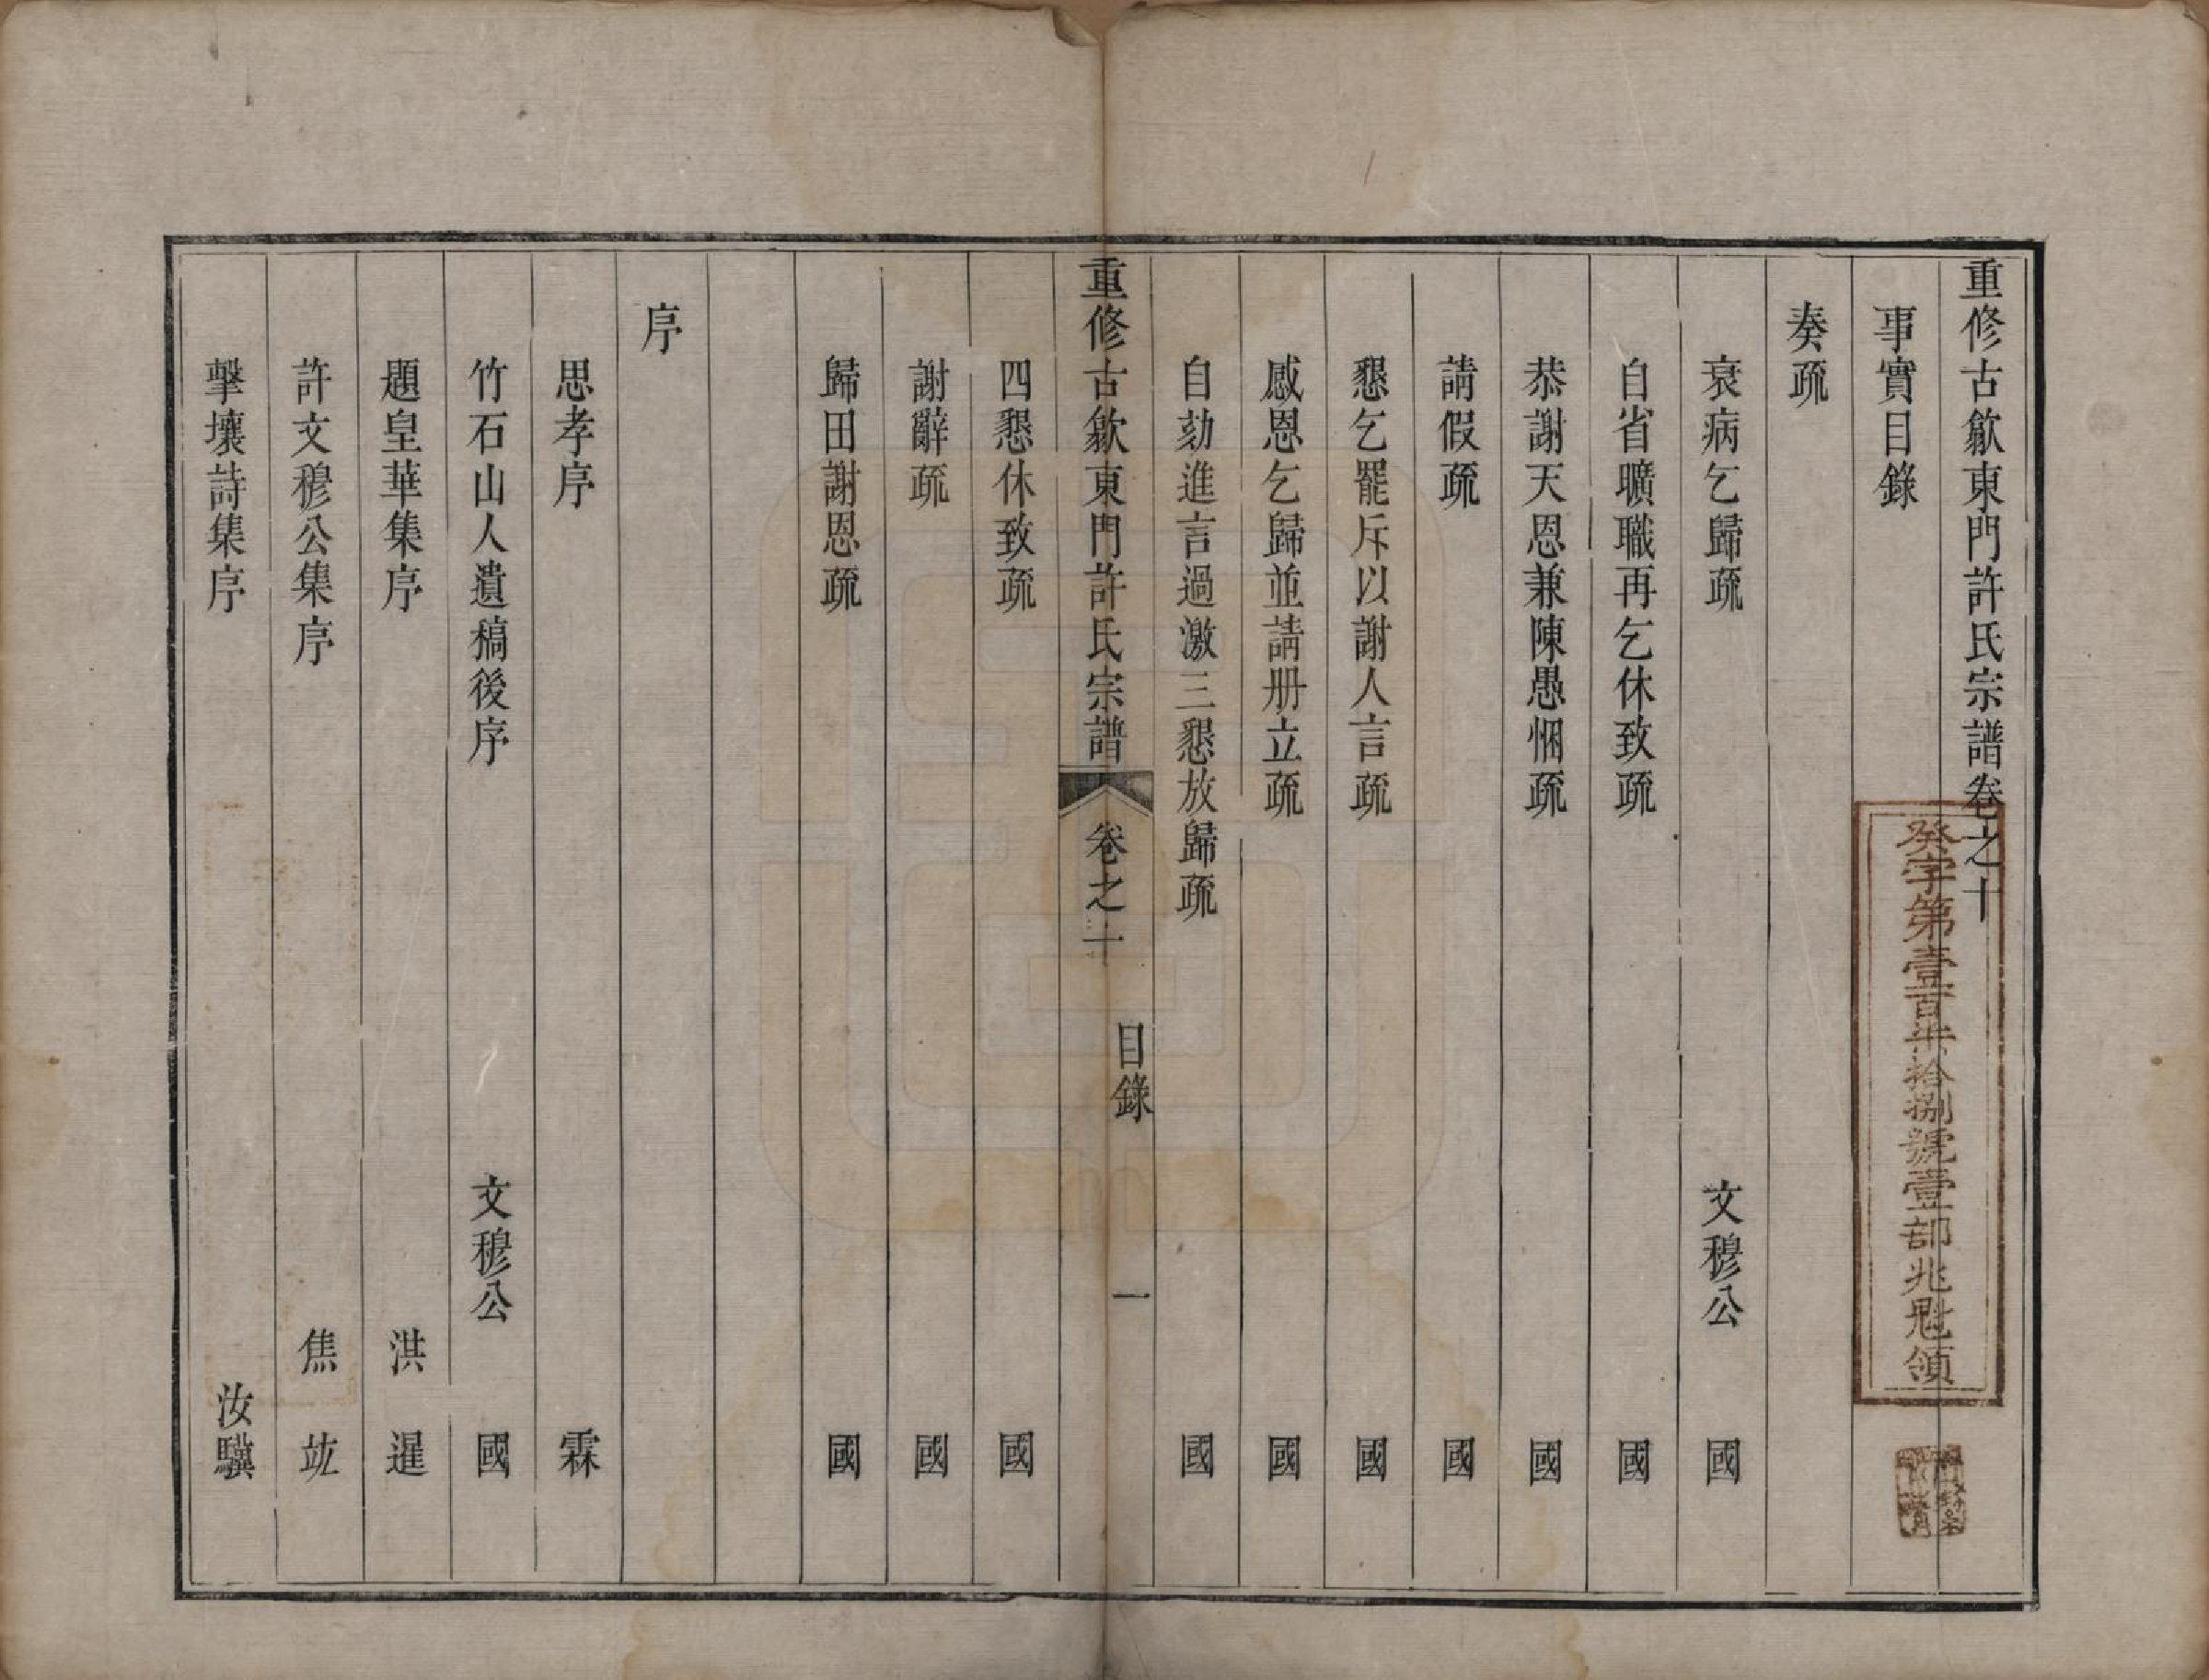 重修古歙東門許氏宗譜卷之十
事實目錄
奏疏
衰病乞歸疏 文穆公 國
自省曠職再乞休致疏 國
恭謝天恩兼陳愚悃疏 國
請假疏 國
懇乞罷斥以謝人言疏 國
感恩乞歸並請册立疏 國
自劾進言過激三懇放歸疏 國
重修古歙東門許氏宗譜 卷之十 目錄 一
四懇休致疏 國
謝辭疏 國
歸田謝恩疏 國
序
思孝序 霖
竹石山人遺稿後序 文穆公 國
題皇華集序 洪 暹
許文穆公集序 焦 竑
擊壤詩集序 汝驥
癸字第壹百柒拾捌號壹部兆魁領